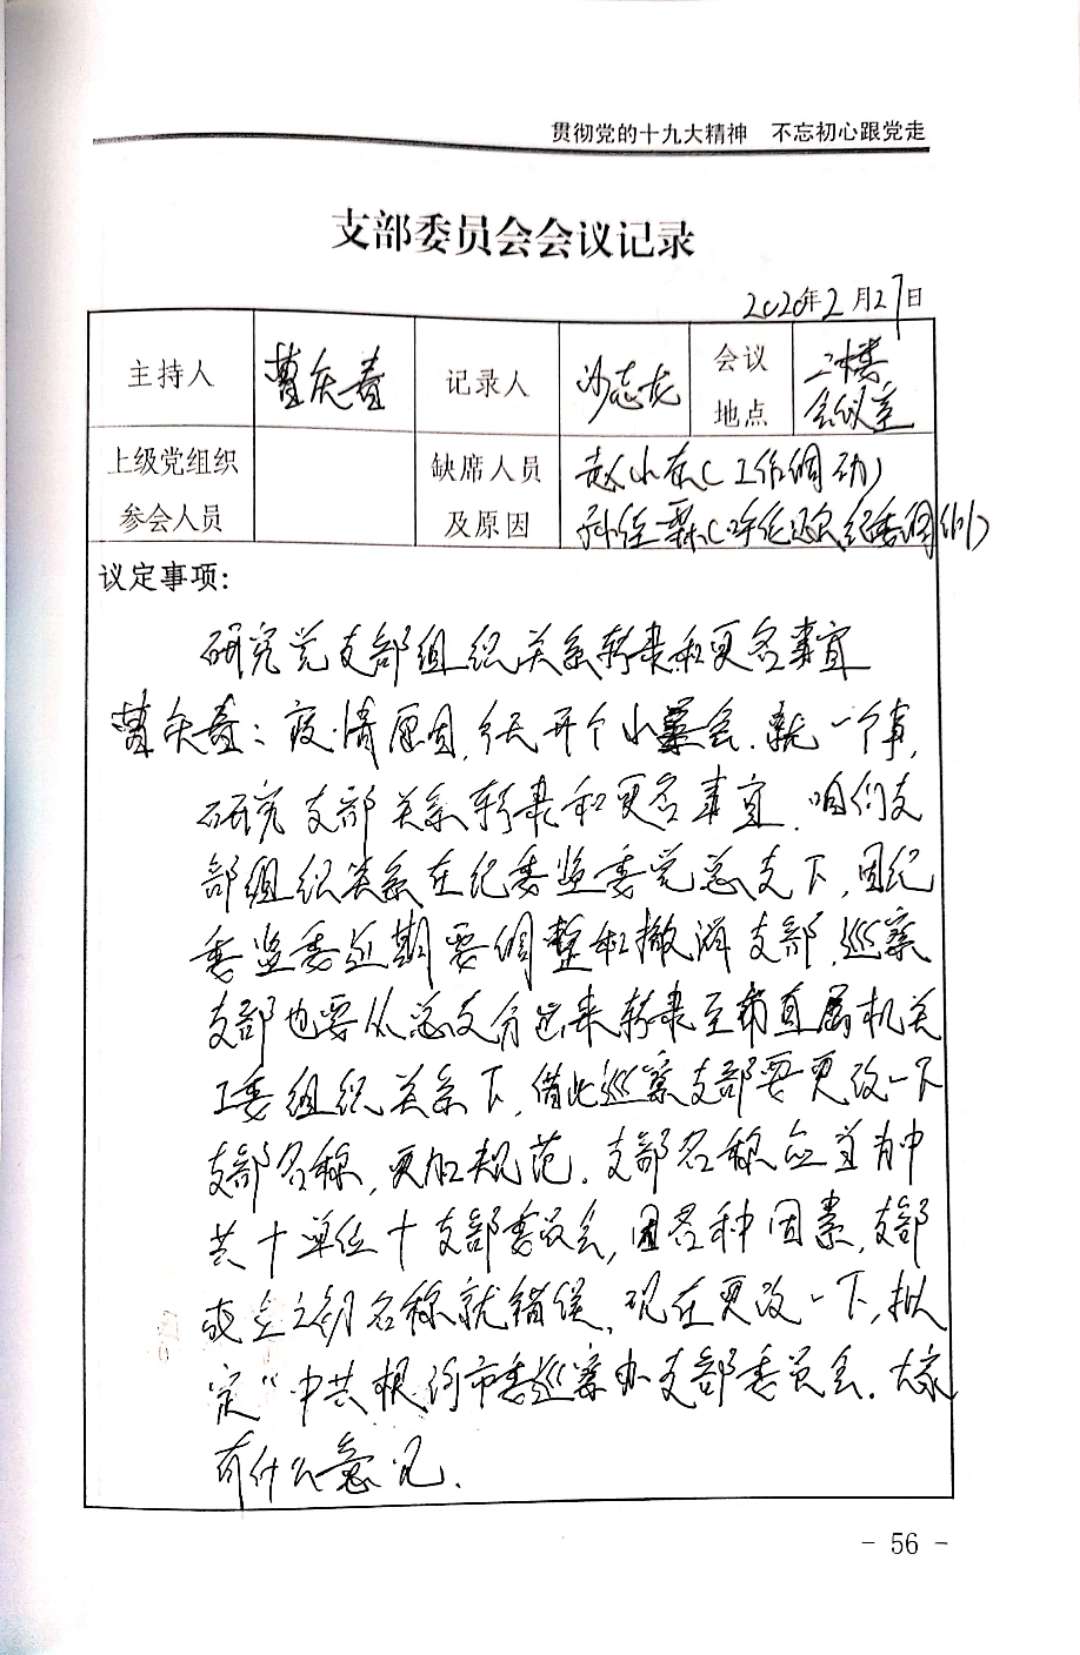 贯彻党的十九大精神 不忘初心跟党走
支部委员会会议记录
2020年2月27日
主持人 曹庆春 记录人 沙志龙 会议地点 二楼会议室
上级党组织参会人员 缺席人员及原因 赵小东(工作调动)
孙佳霖(呼伦贝尔纪委借调)
议定事项:
研究党支部组织关系转隶和更名事宜
曹庆春:疫情原因,今天开个小会.就一个事,
研究支部关系转隶和更名事宜.咱们支
部组织关系在纪委监委党总支下,因纪
委监委近期要调整和撤消支部,巡察
支部也要从总支分出来转隶至市直属机关
工委组织关系下,借此巡察支部要更改一下
支部名称,更加规范.支部名称应当为中
共十单位十支部委员会,因各种因素,支部
成立之初名称就错误,现在更改一下,拟
定“中共根河市委巡察办支部委员会.大家
有什么意见.
- 56 -